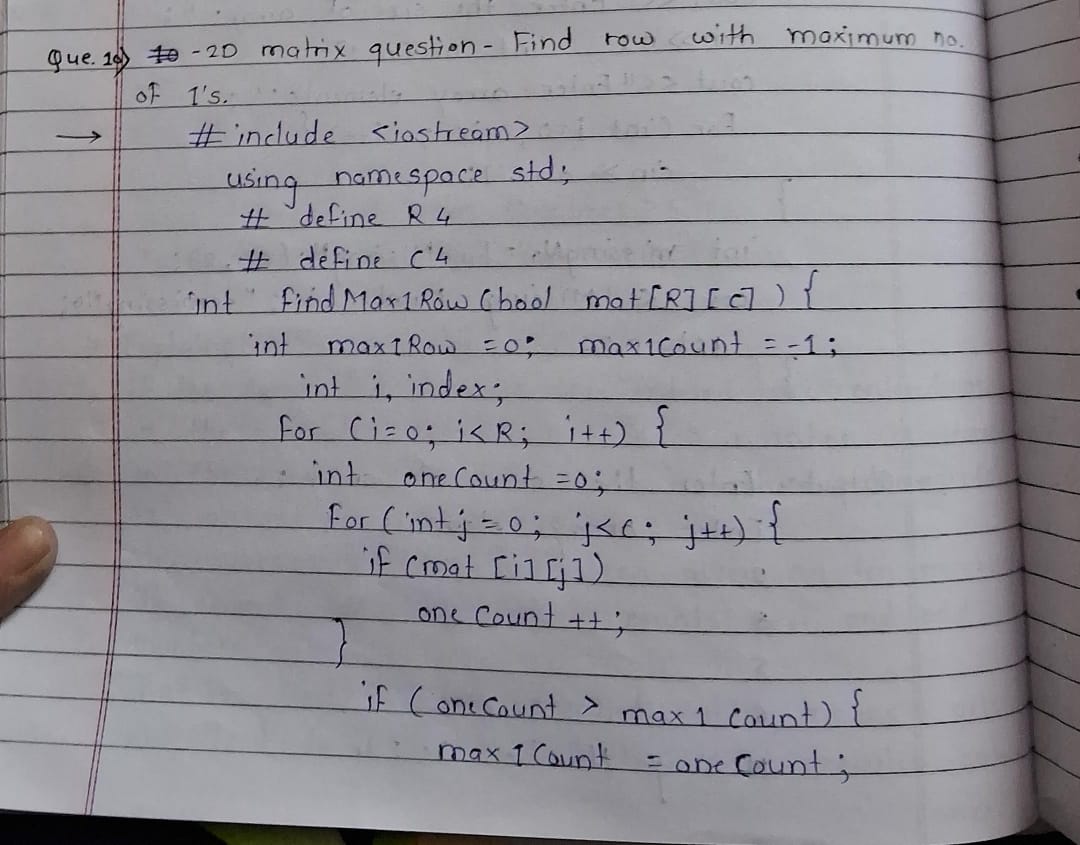 Que. 19) -2D matrix question - Find row with maximum no.
of 1's.
→ # include <iostream>
using namespace std;
# define R 4
# define C 4
int findMax1Row (bool mat[R][C]) {
int max1Row = 0; max1Count = -1;
int i, index;
for (i=0; i<R; i++) {
int oneCount = 0;
for (int j = 0; j<C; j++) {
if (mat [i][j])
oneCount ++;
}
if (oneCount > max1 count) {
max1Count = oneCount;